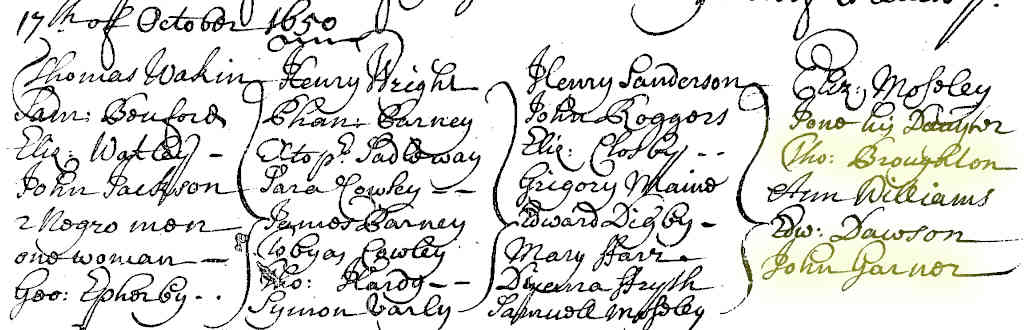 17th of October 1650
Thomas Wakin
Sam: Benford
Eliz: Watley -
John Jackson
2 Negro men
one woman -
Geo: Epherby - -
Henry Wright
Phan: Barney
Xtopr Sadleway
Sara Cowley - -
James Barney
Tobyas Cowley
Tho: Hardy - -
Symon Varly
Henry Sanderson
John Roggers
Eliz: Closby - -
Grigory Maine
Edward Digby -
Mary Starr -
Samuell Moseley
Eliz: Moseley
Jone his
Tho: Broughton
Ann Williams
Edw: Dawson
John Garner